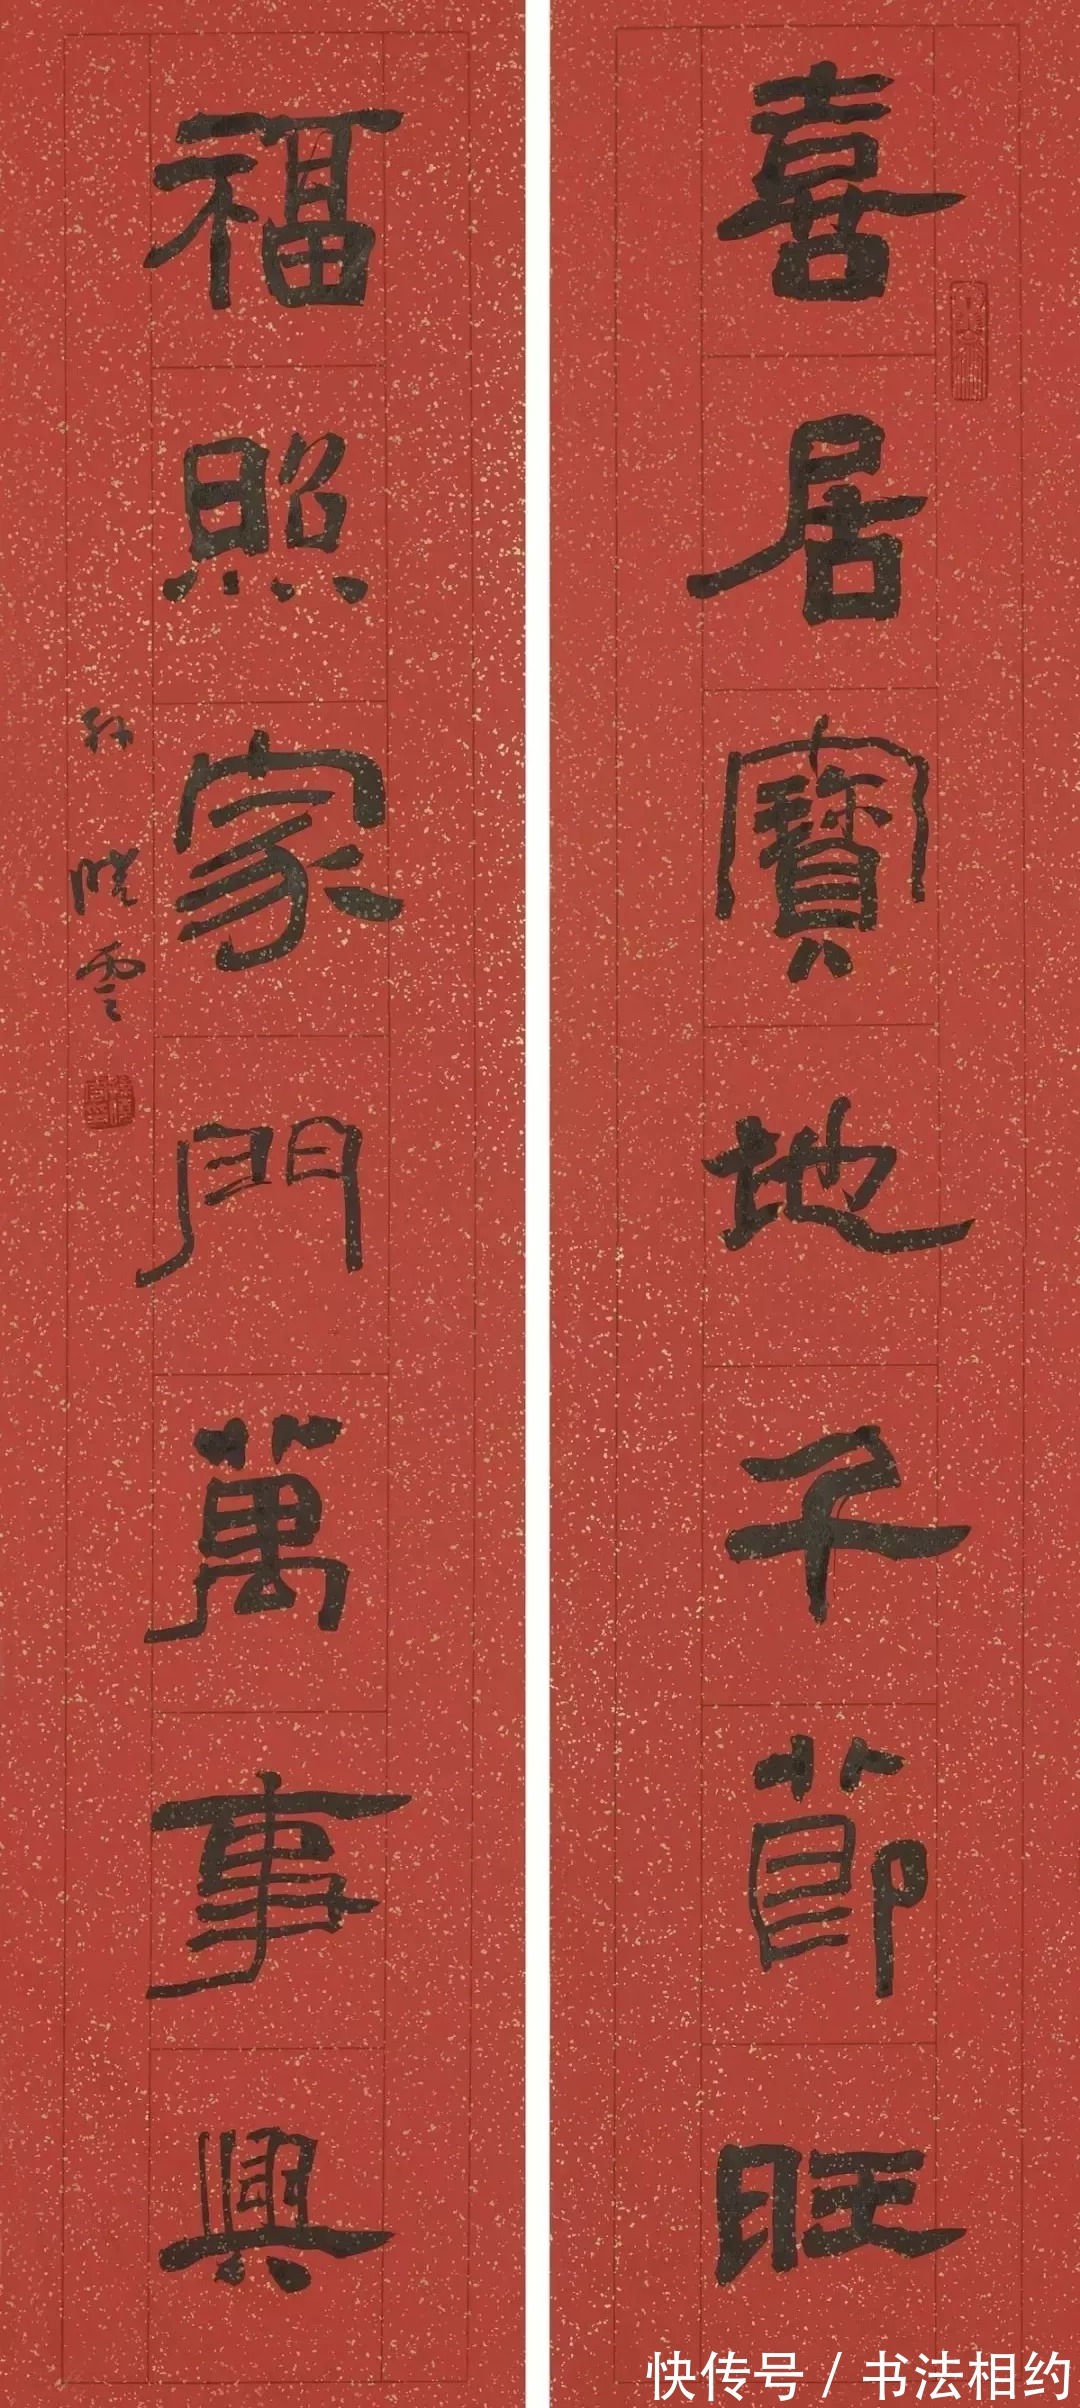 喜居寶地千節旺
福照家門萬事興
孙晓雲
快传号 / 书法相约